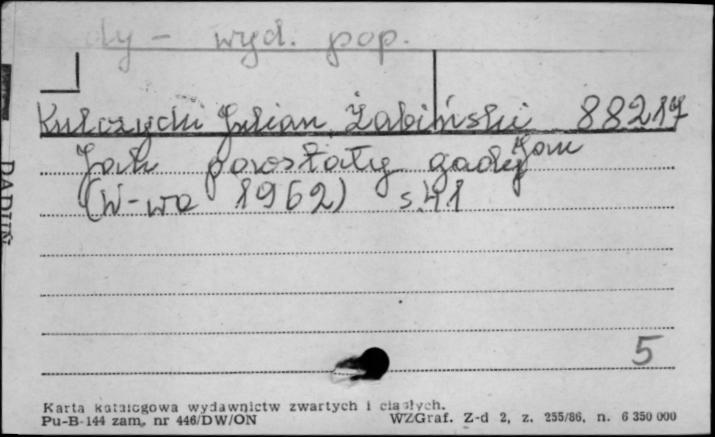 dy - wyd. pop.
Kulczycki Julian, Żabiński Jan 88217
Jak powstały gady
(W-wa 1962) s. 41
5
Karta katalogowa wydawnictw zwartych i ciągłych.
Pu-B-144 zam. nr 446/DW/ON WZGraf. Z-d 2, z. 255/86, n. 6 350 000